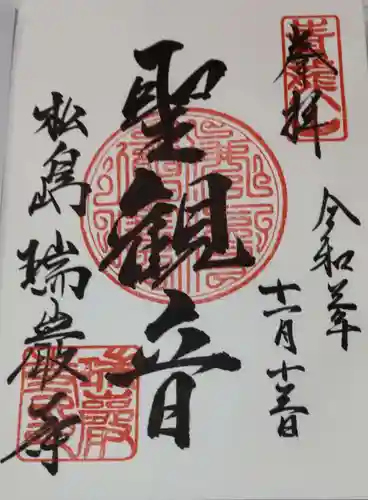 奉拝
令和元年
十一月十三日
聖観音
松島瑞巌寺